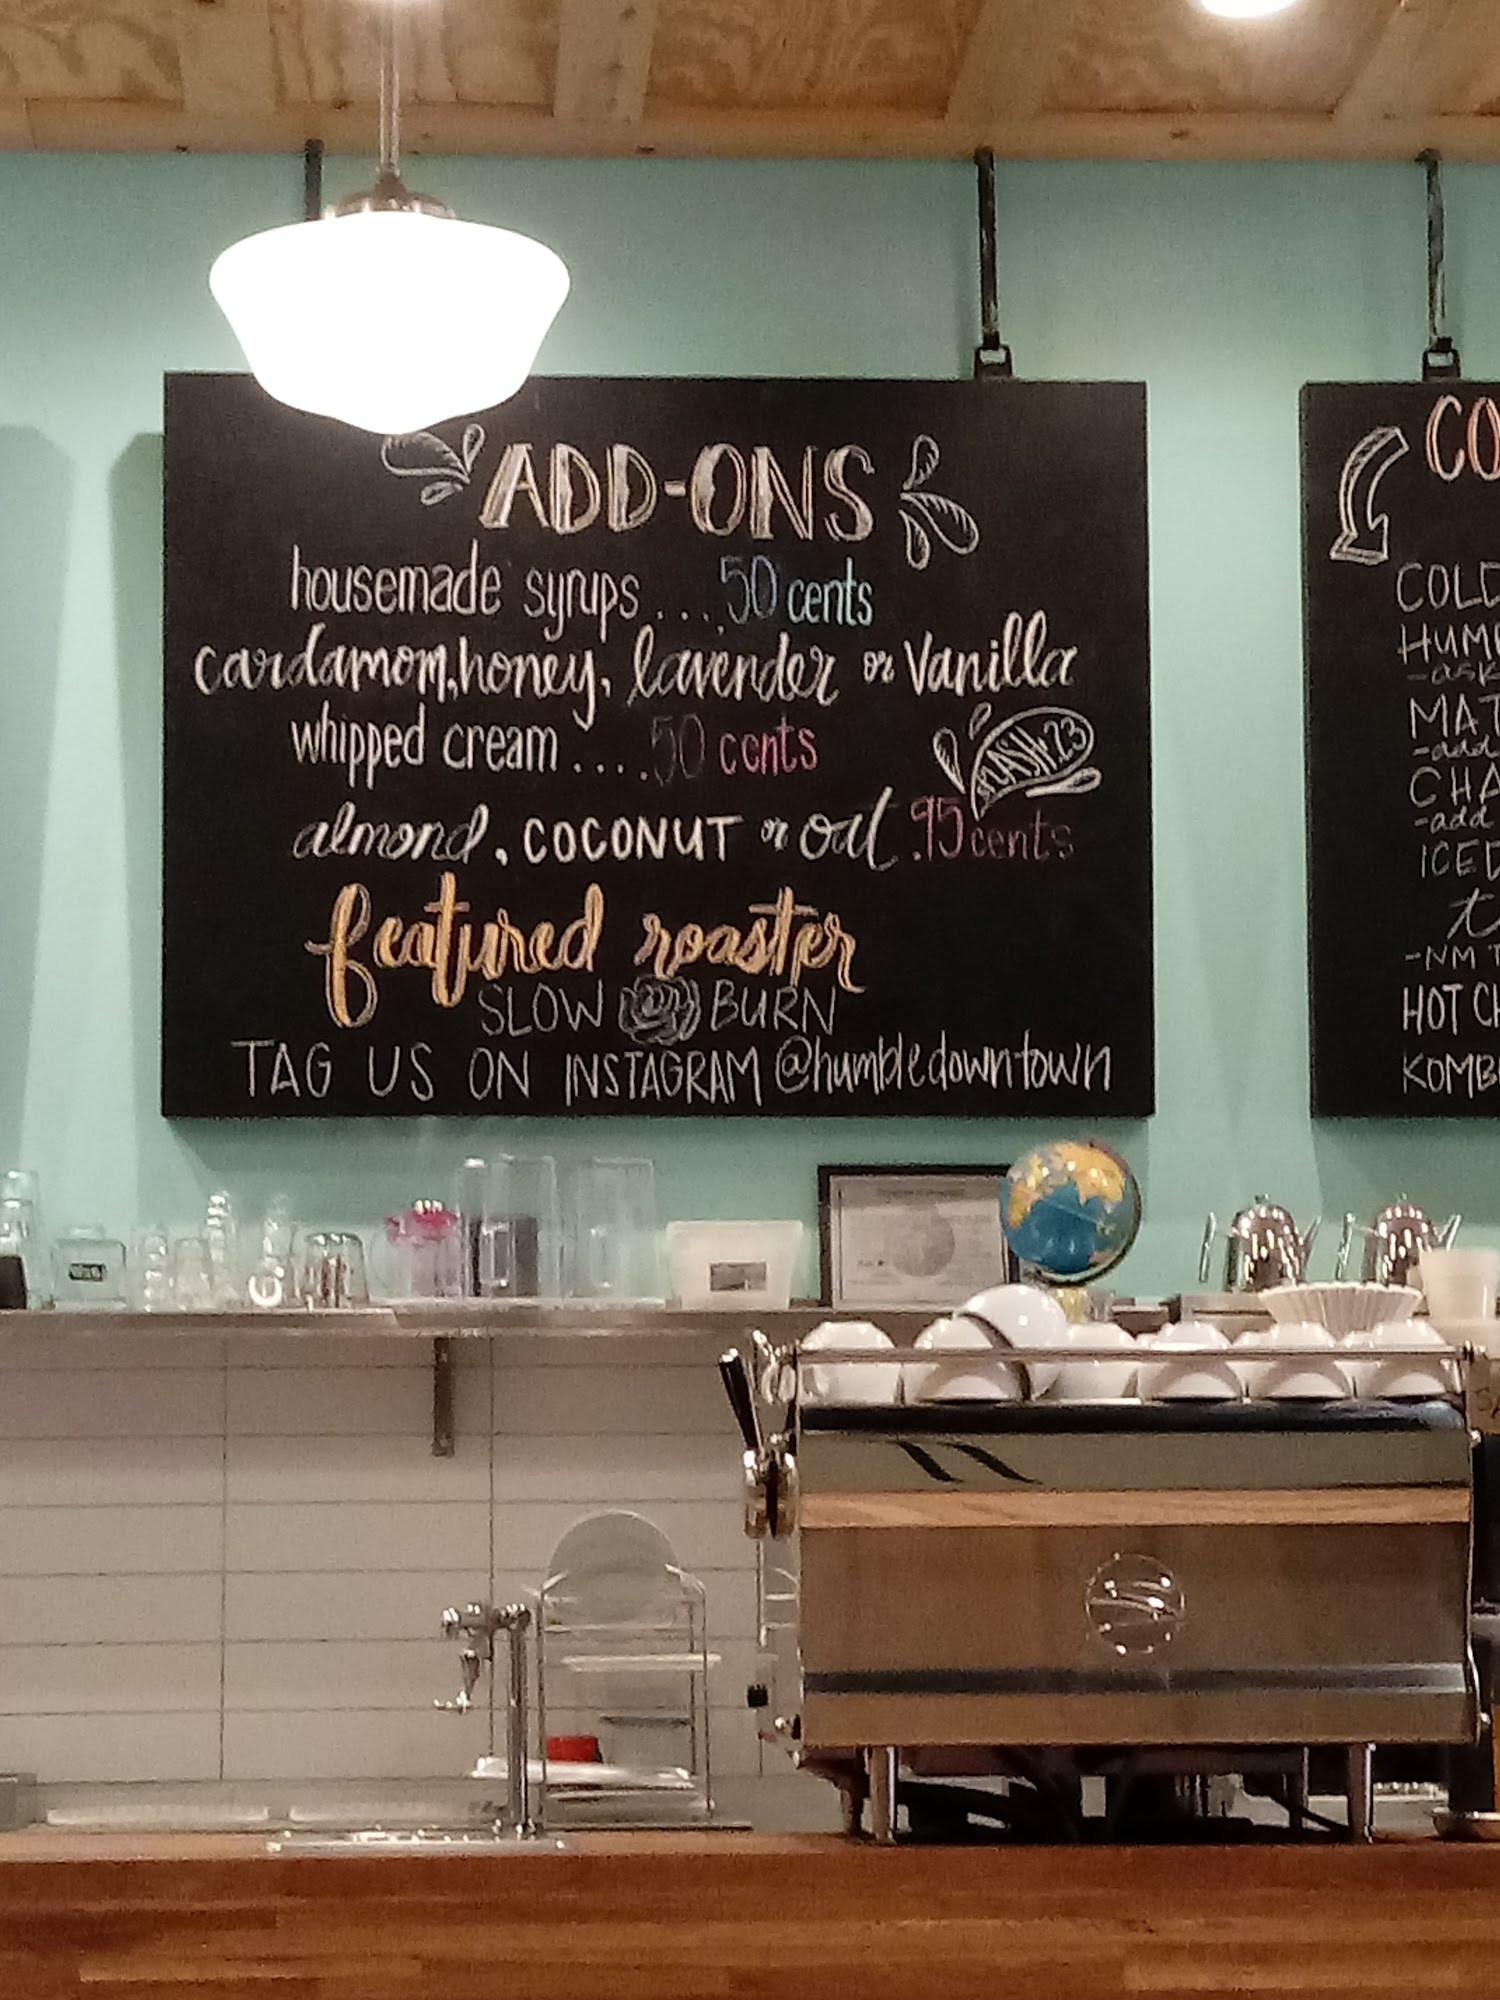 ADD-ONS
housemade syrups....50 cents
cardamom, honey, lavender or Vanilla
whipped cream ....50 cents
SPLASH .23
almond, COCONUT or oat .95 cents
featured roaster
SLOW BURN
TAG US ON INSTAGRAM @humbledowntown
CO
COLD
HUM
-ask
MAT
-add
CHA
-add
ICED
t
-NM T
HOT CH
KOMB